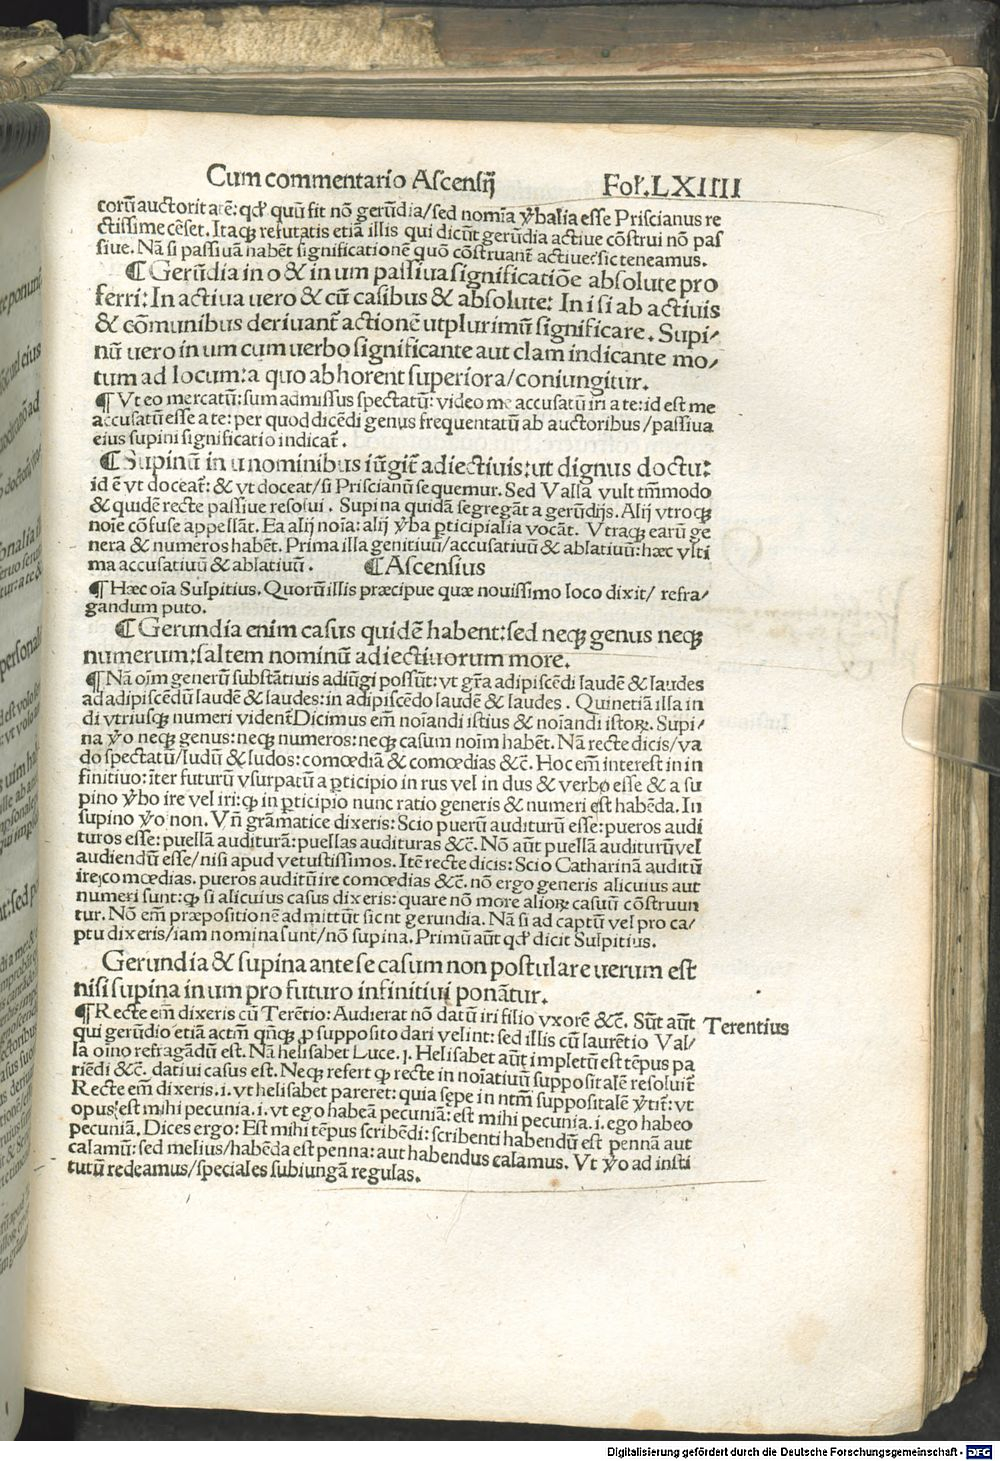 Cum commentario Ascensij Fol.LXIIII
corū auctoritatē: qđ quū fit nō gerūdia/sed nomīa ƴbalia esse Priscianus re
ctissime cēset. Itaqꝫ refutatis etiā illis qui dicūt gerūdia actiue cōstrui nō pas
siue. Nā si passiuā habēt significationē quō cōstruant̄ actiue? sic teneamus.
¶ Gerūdia in o & in um passiua significatiōe absolute pro
ferri: In actiua uero & cū casibus & absolute: In i si ab actiuis
& cōmunibus deriuant̄ actionē utplurimū significare. Supi/
nū uero in um cum uerbo significante aut clam indicante mo/
tum ad locum: a quo abhorent superiora/coniungitur.
¶ Vt eo mercatū: sum admissus spectatū: video me accusatū iri a te: id est me
accusatū esse a te: per quod dicēdi genus frequentatū ab auctoribus/passiua
eius supini significatio indicat̄.
¶ Supinū in u nominibus iūgit̄ adiectiuis: ut dignus doctu:
id ē vt doceat̄: & vt doceat/si Priscianū sequemur. Sed Valla vult tm̄modo
& quidē recte passiue resolui. Supina quidā segregāt a gerūdijs. Alij vtroqꝫ
noīe cōfuse appellāt. Ea alij noīa: alij ƴba ꝑticipialia vocāt. Vtraqꝫ earū ge
nera & numeros habēt. Prima illa genitiuū/accusatiuū & ablatiuū: hæc vlti
ma accusatiuū & ablatiuū. ¶ Ascensius
¶ Hæc oīa Sulpitius. Quorū illis præcipue quæ nouissimo loco dixit/ refra/
gandum puto.
¶ Gerundia enim casus quidē habent: sed neqꝫ genus neqꝫ
numerum: saltem nominū adiectiuorum more.
¶ Nā oīm generū substātiuis adiūgi possūt: vt gr̄a adipiscēdi laudē & laudes
ad adipiscēdū laudē & laudes: in adipiscēdo laudē & laudes. Quinetiā illa in
di vtriusqꝫ numeri vident̄ Dicimus em̄ noīandi istius & noīandi istoꝝ. Supi/
na ƴo neqꝫ genus: neqꝫ numeros: neqꝫ casum noīm habēt. Nā recte dicis/va
do spectatū/ludū & ludos: comœdiā & comœdias &c̄. Hoc em̄ interest in in
finitiuo: īter futurū vsurpatū a ꝑticipio in rus vel in dus & verbo esse & a su
pino ƴbo ire vel iri: ꝙ in ꝑticipio nunc ratio generis & numeri est habēda. In
supino ƴo non. Vn̄ grāmatice dixeris: Scio puerū auditurū esse: pueros audi
turos esse: puellā auditurā: puellas audituras &c̄. Nō aūt puellā auditurū vel
audiendū esse/nisi apud vetustissimos. Itē recte dicis: Scio Catharinā auditū
ire comœdias. pueros auditū ire comœdias &c̄. nō ergo generis alicuius aut
numeri sunt: ꝙ si alicuius casus dixeris: quare nō more alioꝝ casuū cōstruun
tur. Nō em̄ præpositionē admittūt sicut gerundia. Nā si ad captū vel pro ca/
ptu dixeris/iam nomina sunt/nō supina. Primū aūt qđ dicit Sulpitius.
Gerundia & supina ante se casum non postulare uerum est
nisi supina in um pro futuro infinitiui ponātur.
¶ Recte em̄ dixeris cū Terētio: Audierat nō datū iri filio vxorē &c̄. Sūt aūt Terentius
qui gerūdio etiā actm̄ qn̄qꝫ ꝓ supposito dari velint: sed illis cū laurētio Val/
la oīno refragādū est. Nā helisabet Luce.j. Helisabet aūt impletū est tēpus pa
riēdi &c̄. datiui casus est. Neqꝫ refert ꝙ recte in noīatiuū suppositalē resoluit̄
Recte em̄ dixeris .i. vt helisabet pareret: quia sepe in ntm̄ suppositalē ƴtit̄: vt
opus est mihi pecunia .i. vt ego habeā pecuniā: est mihi pecunia .i. ego habeo
pecuniā. Dices ergo: Est mihi tēpus scribēdi: scribenti habendū est pennā aut
calamū: sed melius/habēda est penna: aut habendus calamus. Vt ƴo ad insti
tutū redeamus/speciales subiungā regulas.
Digitalisierung gefördert durch die Deutsche Forschungsgemeinschaft - DFG